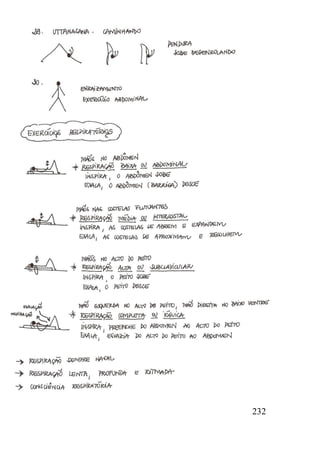 29. UTTANASANA - CAMINHANDO
PENDURA
SOBE DESENROLANDO
30.
ENRAIZAMENTO
EXERCÍCIO ABDOMINAL
EXERCÍCIOS RESPIRATÓRIOS
MÃOS NO ABDÔMEN
RESPIRAÇÃO BAIXA OU ABDOMINAL
INSPIRA, O ABDÔMEN SOBE
EXALA, O ABDÔMEN (BARRIGA) DESCE
MÃOS NAS COSTELAS FLUTUANTES
RESPIRAÇÃO MÉDIA OU INTERCOSTAL
INSPIRA, AS COSTELAS SE ABREM E EXPANDEM
EXALA, AS COSTELAS SE APROXIMAM E RECOLHEM
MÃOS NO ALTO DO PEITO
RESPIRAÇÃO ALTA OU SUBCLAVICULAR
INSPIRA O PEITO SOBE
EXALA, O PEITO DESCE
EXALAÇÃO
INSPIRAÇÃO
MÃO ESQUERDA NO ALTO DO PEITO, MÃO DIREITA NO BAIXO VENTRE
RESPIRAÇÃO COMPLETA OU IÓGUICA
INSPIRA, PREENCHE DO ABDOMEN AO ALTO DO PEITO
EXALA, ESVAZIA DO ALTO DO PEITO AO ABDOMEN
→ RESPIRAÇÃO SEMPRE NASAL
→ RESPIRAÇÃO LENTA, PROFUNDA E RITMADA
→ CONSCIÊNCIA RESPIRATÓRIA
232